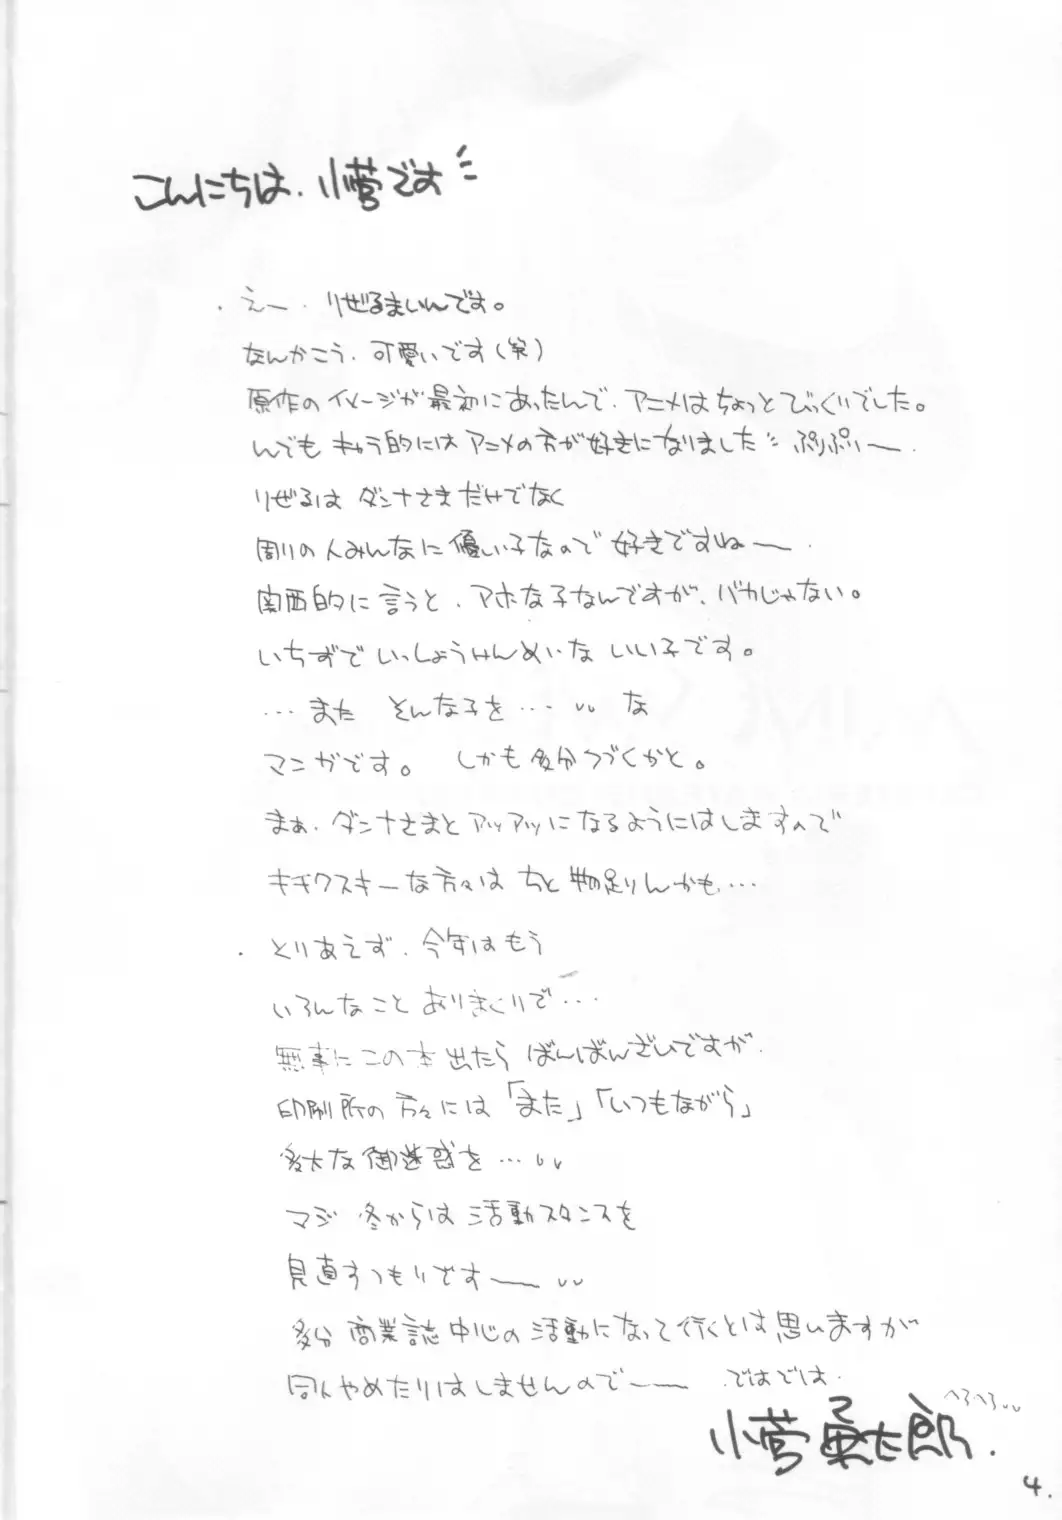 こんにちは、小菅です
・えー、りぜるまいんです。
なんかこう、可愛いです（笑）
原作のイメージが最初にあったんで、アニメはちょっとびっくりでした。
んでも キャラ的にはアニメの方が好きになりました ぷりぷりー、
りぜるは ダンナさまだけでなく
周りの人みんなに優しい子なので好きですねー、
関西的に言うと、アホな子なんですが、バカじゃない。
いちずで いっしょうけんめいな いい子です。
…また そんな子を… な
マンガです。 しかも多分つづくかと。
まぁ、ダンナさまとアツアツになるようにはしますので
キチクスキーな方々は ちと物足りんかも…
・とりあえず、今年はもう
いろんなことありまくりで…
無事にこの本出たら ばんばんざいですが、
印刷所の方々には「また」「いつもながら」
多大な御迷惑を…
マジ 冬からは 活動スタンスを
見直すつもりですー
多分 商業誌中心の活動になって行くとは思いますが
同人やめたりはしませんのでー 、ではでは、
へろへろ
小菅勇太郎.
4.